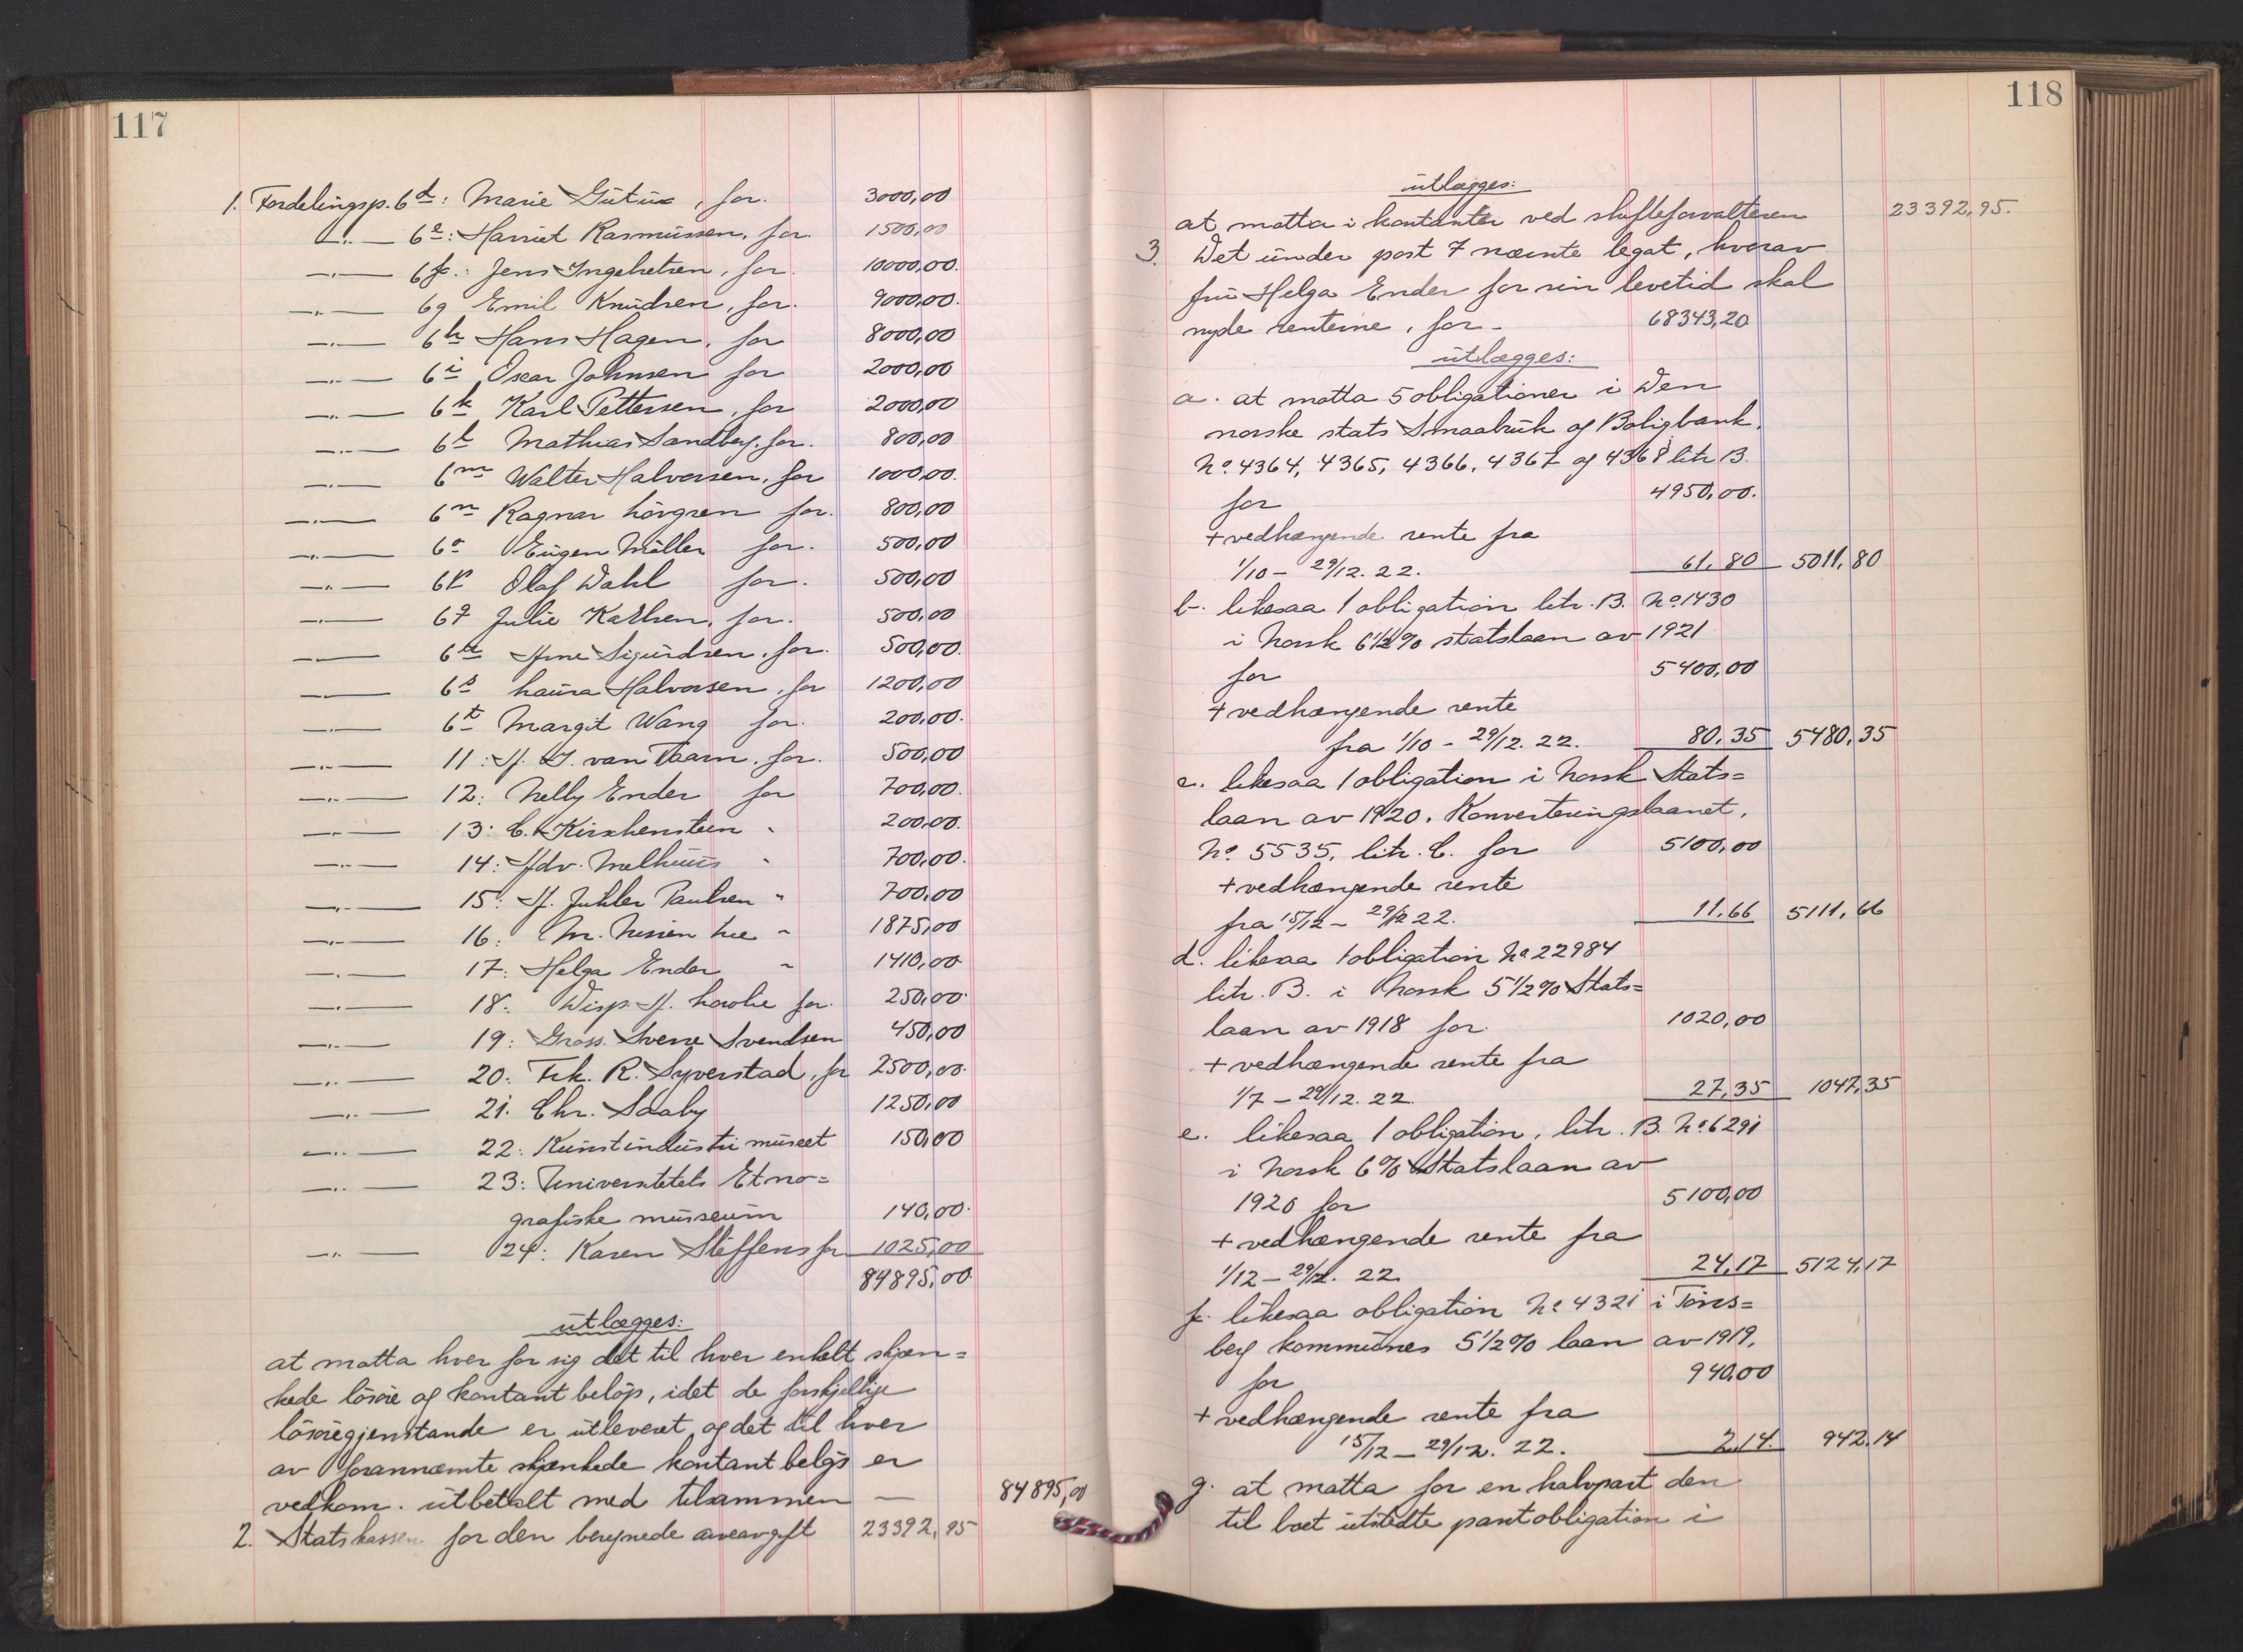 117
1. Fordelingsp. 6d: Marie Gütüx, for. 3000,00
—"— 6e: Harriet Rasmüssen, for. 1500,00
—"— 6f.: Jens Ingebretsen, for. 10000,00.
—"— 6g Emil Knüdsen, for. 9000,00.
—"— 6h Hans Hagen, for 8000,00
—"— 6i Oscar Johnsen for 2000,00
—"— 6k Karl Pettersen, for 2000,00
—"— 6l Mathias Sandberg, for. 800,00
—"— 6m Walter Halvorsen, for 1000,00.
—"— 6n Ragnar Lövgren for. 800,00
—"— 6o Eügen Müller for. 500,00
—"— 6p Olaf Dahl for. 500,00
—"— 6q Julie Karlsen, for. 500,00
—"— 6r Arne Sigürdsen, for. 500,00.
—"— 6s Laüra Halvorsen, for 1200,00
—"— 6t Margit Wang for. 200,00.
—"— 11: A. J. van Baarn, for. 500,00
—"— 12: Nelly Ender for 700,00.
—"— 13: C. Kirschenstein " 200,00.
—"— 14: Adv. Melhüüs " 700,00.
—"— 15: A. Juhler Paulsen " 700,00
—"— 16: M. Nissen Lie " 1875,00
—"— 17: Helga Ender " 1410,00
—"— 18: Disp. A. for. 250,00
—"— 19: Gross. Sverre Svendsen 450,00
—"— 20: Frk. R. Syverstad, for 2500,00.
—"— 21. Chr. Saaby 1250,00
—"— 22: Künstindüstri müseet 150,00
—"— 23: Universitetets Etno=
grafiske müseüm 140,00.
—"— 24: Karen Steffens for 1025,00
84895,00
ütlægges:
at motta hver for sig det til hver enkelt skjæn=
kede lösöre og kontant belöp, idet de forskjellige
lösöregjenstande er ütleveret og det til hver
av forannævnte skjænkede kontant belöp er
vedkom. ütbetalt med tilsammen — 84895,00
2. Statskassen for den beregnede arveavgift 23392,95
118
ütlægges:
at motta i kontanter ved skifteforvalteren 23392,95.
3. Det ünder post 7 nævnte legat, hvorav
frü Helga Ender for sin levetid skal
nyde renterne, for - 68343,20
ütlægges:
a. at motta 5 obligationer i Den
norske stats Smaabrük og Boligbank,
No. 4364, 4365, 4366, 4367 og 4368 litr. B.
for 4950,00.
+ vedhængende rente fra
1/10 - 29/12. 22. 61,80 5011,80
b. likesaa 1 obligation litr. B. No. 1430
i Norsk 6 1/2 % statslaan av 1921
for 5400,00
+ vedhængende rente
fra 1/10 - 29/12. 22. 80,35 5480,35
c. likesaa 1 obligation i Norsk Stats=
laan av 1920. Konverteringslaanet,
No. 5535. litr. C. for 5100,00
+ vedhængende rente
fra 15/12 - 29/12 22. 11,66 5111,66
d. likesaa 1 obligation No 22984
litr. B. i Norsk 5 1/2 % Stats=
laan av 1918 for. 1020,00
+ vedhængende rente fra
1/7 - 29/12. 22. 27,35 1047,35
e. likesaa 1 obligation, litr. B. No. 6291
i Norsk 6 % Statslaan av
1920 for 5100,00
+ vedhængende rente fra
1/12 - 29/12. 22. 24,17 5124,17
f. likesaa obligation No 4321 i Töns=
berg kommünes 5 1/2 % laan av 1919,
for 940,00
+ vedhængende rente fra
15/12 - 29/12. 22. 2,14. 942,14
g. at motta for en halvpart den
til boet ütstedte pantobligation i